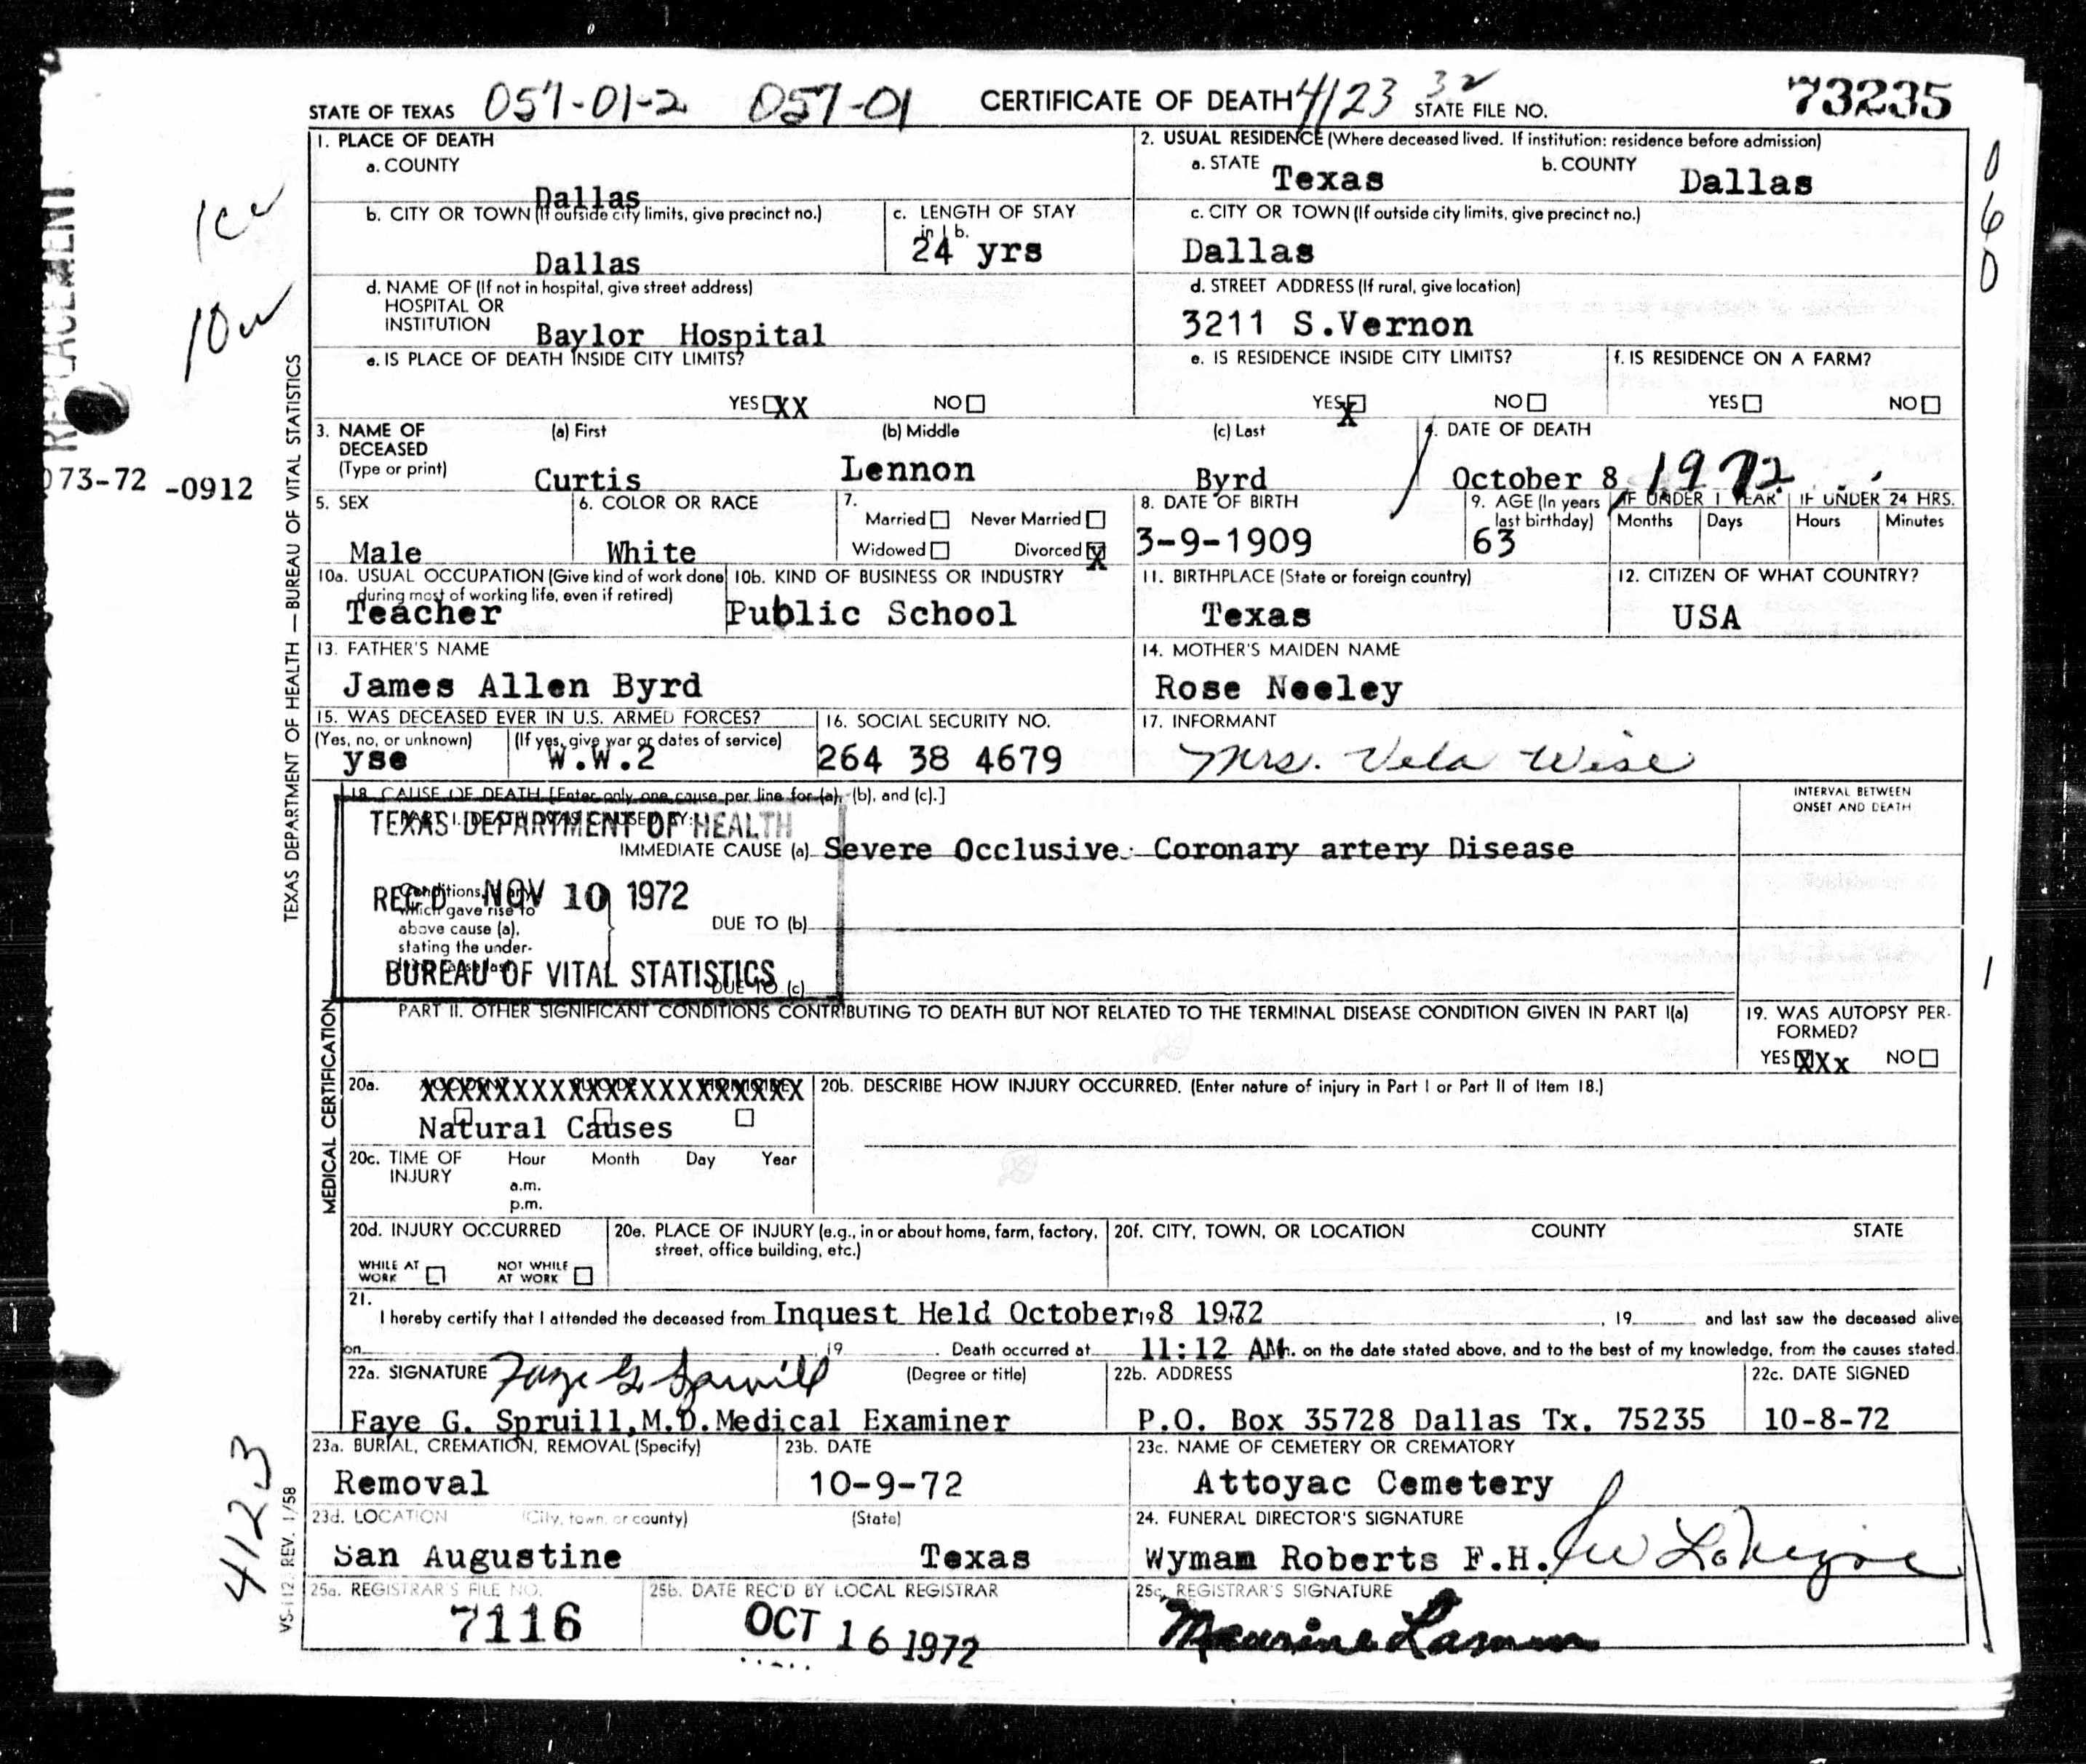 STATE OF TEXAS 057-01-2 057-01 CERTIFICATE OF DEATH 4123 32 STATE FILE NO. 73235
1. PLACE OF DEATH
a. COUNTY
Dallas
2. USUAL RESIDENCE (Where deceased lived. If institution: residence before admission)
a. STATE Texas b. COUNTY Dallas
b. CITY OR TOWN (If outside city limits, give precinct no.)
Dallas
c. LENGTH OF STAY
in 1 b.
24 yrs
c. CITY OR TOWN (If outside city limits, give precinct no.)
Dallas
d. NAME OF (If not in hospital, give street address)
HOSPITAL OR
INSTITUTION Baylor Hospital
d. STREET ADDRESS (If rural, give location)
3211 S.Vernon
e. IS PLACE OF DEATH INSIDE CITY LIMITS?
YES XX NO
e. IS RESIDENCE INSIDE CITY LIMITS?
YES X NO
f. IS RESIDENCE ON A FARM?
YES NO
3. NAME OF
DECEASED
(Type or print)
(a) First (b) Middle (c) Last
Curtis Lennon Byrd
4. DATE OF DEATH
October 8 1972
5. SEX
Male
6. COLOR OR RACE
White
7.
Married Never Married
Widowed Divorced X
8. DATE OF BIRTH
3-9-1909
9. AGE (In years
last birthday)
63
IF UNDER 1 YEAR IF UNDER 24 HRS.
Months Days Hours Minutes
10a. USUAL OCCUPATION (Give kind of work done
during most of working life, even if retired)
Teacher
10b. KIND OF BUSINESS OR INDUSTRY
Public School
11. BIRTHPLACE (State or foreign country)
Texas
12. CITIZEN OF WHAT COUNTRY?
USA
13. FATHER'S NAME
James Allen Byrd
14. MOTHER'S MAIDEN NAME
Rose Neeley
15. WAS DECEASED EVER IN U.S. ARMED FORCES?
(Yes, no, or unknown) (If yes, give war or dates of service)
yse W.W.2
16. SOCIAL SECURITY NO.
264 38 4679
17. INFORMANT
Mrs. Vela Wise
18. CAUSE OF DEATH [Enter only one cause per line for (a), (b), and (c).]
INTERVAL BETWEEN
ONSET AND DEATH
TEXAS DEPARTMENT OF HEALTH
IMMEDIATE CAUSE (a) Severe Occlusive Coronary artery Disease
REC'D NOV 10 1972
Conditions,
which gave rise to
above cause (a),
stating the under-
DUE TO (b)
BUREAU OF VITAL STATISTICS
DUE TO (c)
PART II. OTHER SIGNIFICANT CONDITIONS CONTRIBUTING TO DEATH BUT NOT RELATED TO THE TERMINAL DISEASE CONDITION GIVEN IN PART I(a)
19. WAS AUTOPSY PER-
FORMED?
YES XXx NO
20a. ACCIDENT SUICIDE HOMICIDE
Natural Causes
20b. DESCRIBE HOW INJURY OCCURRED. (Enter nature of injury in Part I or Part II of Item 18.)
20c. TIME OF
INJURY
Hour Month Day Year
a.m.
p.m.
20d. INJURY OCCURRED
WHILE AT
WORK
NOT WHILE
AT WORK
20e. PLACE OF INJURY (e.g., in or about home, farm, factory,
street, office building, etc.)
20f. CITY, TOWN, OR LOCATION COUNTY STATE
21.
I hereby certify that I attended the deceased from Inquest Held October 8 1972, 19 and last saw the deceased alive
on 19 . Death occurred at 11:12 AM. on the date stated above, and to the best of my knowledge, from the causes stated.
22a. SIGNATURE Faye G. Spruill (Degree or title)
Faye G. Spruill,M.D.Medical Examiner
22b. ADDRESS
P.O. Box 35728 Dallas Tx. 75235
22c. DATE SIGNED
10-8-72
23a. BURIAL, CREMATION, REMOVAL (Specify)
Removal
23b. DATE
10-9-72
23c. NAME OF CEMETERY OR CREMATORY
Attoyac Cemetery
23d. LOCATION (City, town, or county) (State)
San Augustine Texas
24. FUNERAL DIRECTOR'S SIGNATURE
Wyman Roberts F.H.
25a. REGISTRAR'S FILE NO.
7116
25b. DATE REC'D BY LOCAL REGISTRAR
OCT 16 1972
25c. REGISTRAR'S SIGNATURE
Maurine
TEXAS DEPARTMENT OF HEALTH — BUREAU OF VITAL STATISTICS
MEDICAL CERTIFICATION
VS-112, REV. 1/58
REPLACEMENT
073-72 -0912
4123
0
6
0
1